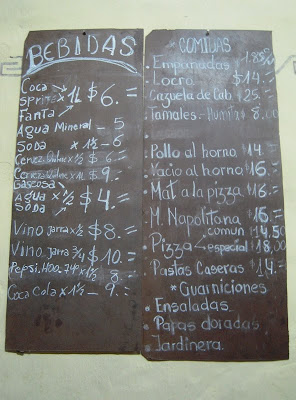 BEBIDAS
Coca
Sprite x 1L $ 6.=
Fanta
Agua Mineral - 5
Soda x 1½ - 6
x ½ $ 6.=
x 1L - 9.=
Gaseosa
Agua x ½ $ 4.=
Soda
Vino Jarra x ½ $ 8.=
Vino Jarra ¾ $ 10.=
Pepsi. x 1½ 8.=
Coca Cola x 1½ - 9.=
"COMIDAS
. Empanadas
. Locro $ 14.=
. Cazuela de Cab $ 25.=
. Tamales - Humita $ 8.
. Pollo al horno $ 14.=
. Vacio al horno $ 16.=
. Mat a la pizza $ 16.=
. M. Napolitana $ 16.=
. Pizza comun 14.50
especial $ 18,00
. Pastas Caseras $ 14.=
* Guarniciones
. Ensaladas
. Papas doradas
. Jardinera.